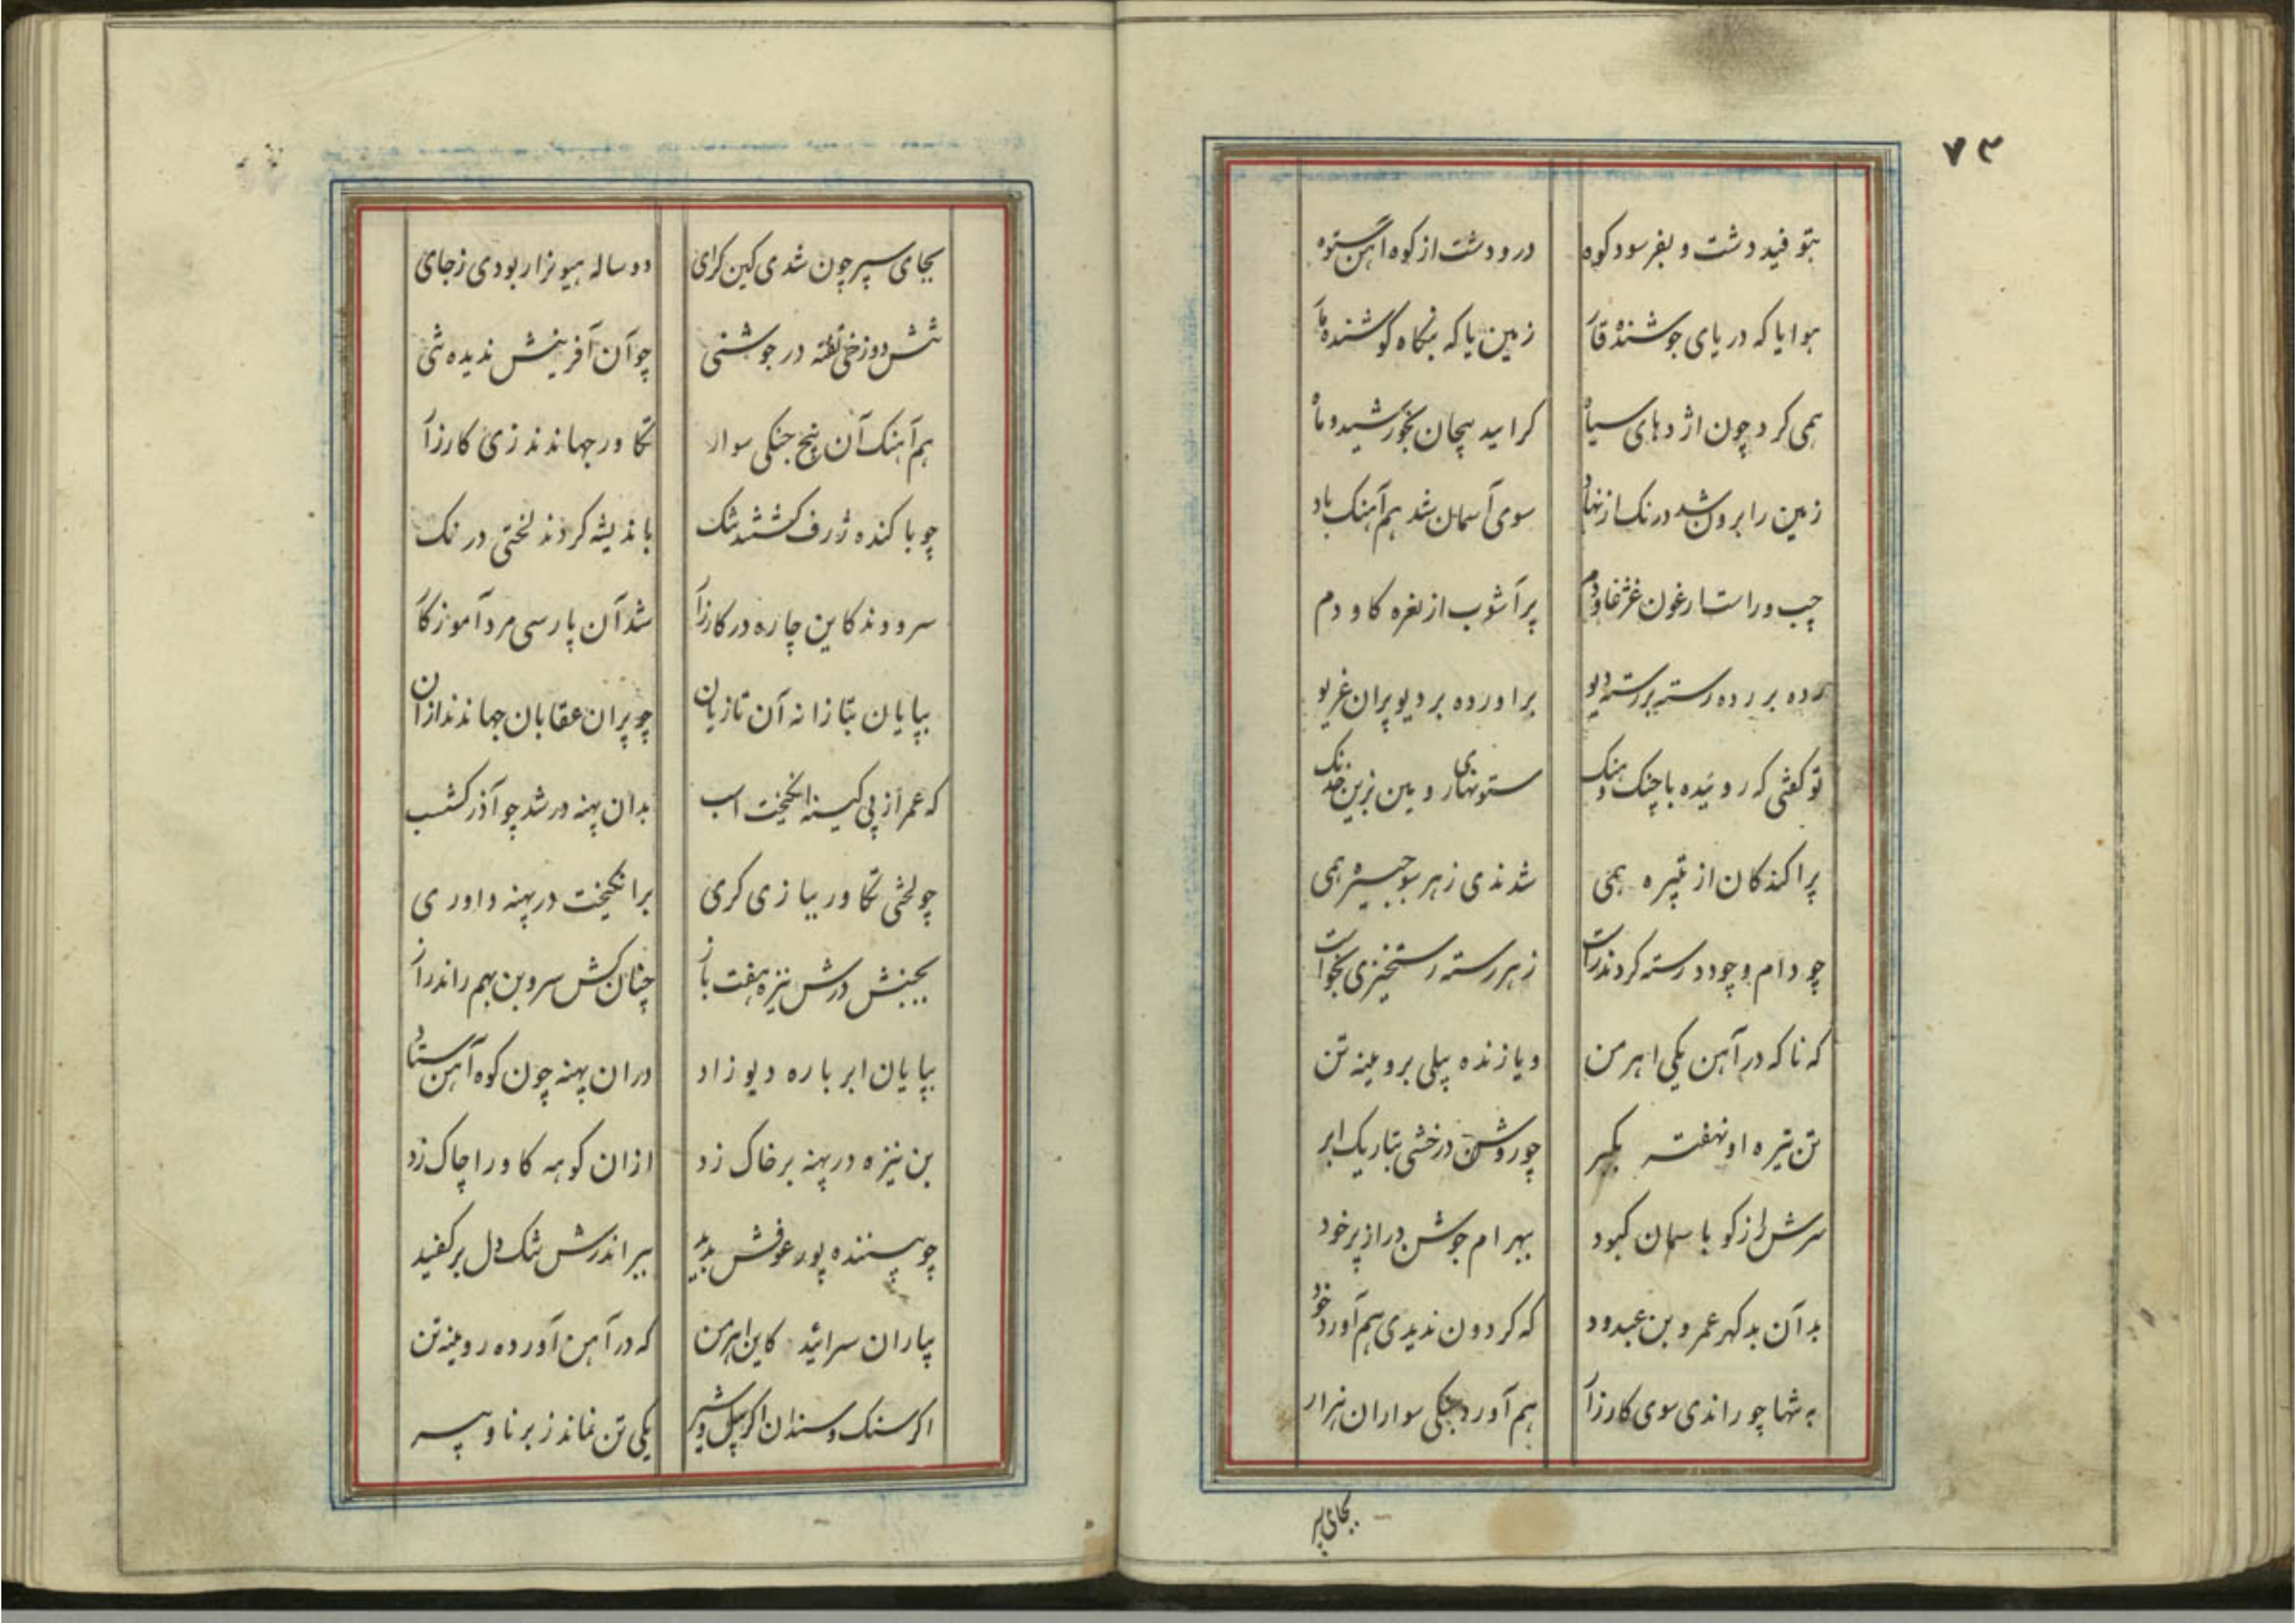 ۷۳
بتوفید دشت و بفرسود کوه درو دشت از کوه آهن ستوه
هوا یا که دریای جوشنده قار زمین یا که بنگاه کوشنده مار
همی کرد چون اژدهای سیاه کراید پیچان بخورشید و ماه
زمین را برون شد درنک از نهاد سوی آسمان شد هم آهنک باد
چپ و راست ارغون غژغاو دم پر آشوب از نعره کاو دم
رده بر رده رسته بر رسته دیو براورده بر دیو پران غریو
تو کفتی که روئیده با چنک و هنک ستونهای رویین زرین خدنک
پراکندکان از تبیره همی شدندی ز هر سو جبیره همی
چو دام و چو دد رسته کردند راست ز هر رسته رستخیزی بخواست
که ناکه در آهن یکی اهرمن و یا زنده پیلی بروینه تن
تن تیره او نهفته بکبر چو روشن درخشی بتاریک ابر
سرش راز کو با سمان کبود ببهرام جوشن در از پر خود
بد آن بدکهر عمرو بن عبدود که کردون ندیدی هم آورد خود
به تنها چو راندی سوی کارزار هم آورد جنکی سواران هزار
بجای سپر
بجای سپر چون شدی کین کرای دو ساله هیونزا ربودی ز جای
تنش دوزخی تفته در جوشنی چو آن آفرینش ندیده تنی
هم آهنک آن پنج جنکی سوار تکاور جهاندند زی کارزار
چو با کنده ژرف کشتند تنک باندیشه کردند لختی درنک
سرودند کاین چاره در کارزار شد آن پارسی مرد آموزکار
بپایان بتازانه آن تازیان چو پران عقابان جهاندند ازان
که عمر از پی کینه انکیخت اسب بدان پهنه در شد چو آذرکشسب
چو لختی تکاور ببازی کری برانکیخت در پهنه داوری
بجنبش درش نیزه هفت باز چنان کش سر و بن بهم راند راز
بپایان ابر باره دیو زاد دران پهنه چون کوه آهن ستاد
بن نیزه در پهنه بر خاک زد ازان کوهه کاو را چاک زد
چو پسننده پور عوفش بدید ببر اندرش تنک دل برکفید
بیاران سرائید کاین اهرمن که در آهن آورده روینه تن
اکر سنک و سندان اکر پیل و شیر یکی تن نماند ز برنا و پیر